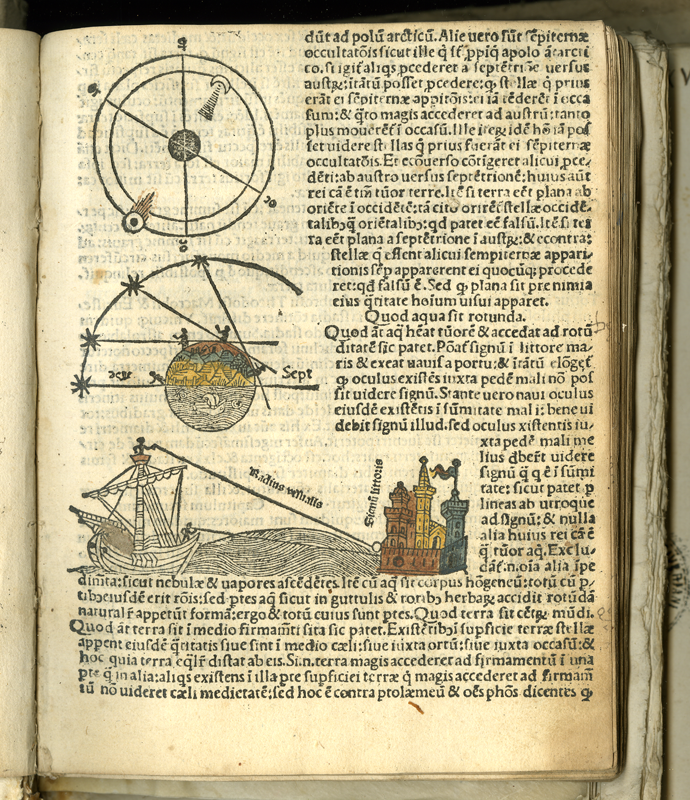 dūt ad polū arcticū. Alie vero sūt sēpiternæ
occultatōis sicut ille q̄ sf̄ ꝓpiq̄ apolo ātarcti
co. si igit̄ aliq̄s ꝓcederet a septētriōe versus
austꝝ: itātū posset ꝓcedere: ꝙ stellæ q̄ prius
erāt ei sēpiternæ apparitōis: ei iā tēderēt ī occa
sum: & q̄to magis accederet ad austrū: tanto
plus mouerēt̄ ī occasū. Ille iteꝝ idē hō iā pos
set videre stellas q̄ prius fuerāt ei sēpiternæ
occultatōis. Et ecōuerso cōtigeret alicui ꝓce⸗
dēti: ab austro versus septētrionē: huius aūt
rei cā ē tm̄ tūor terre. Itē si terra eēt plana ab
oriēte ī occidētē: tā cito orirēt̄ stellæ occidē⸗
talibꝫ q̄ oriētalibꝫ: qd patet eē falsū. Itē si ter
ra eēt plana a septētrione ī austꝝ: & econtra:
stellæ q̄ essent alicui sempiternæ appari⸗
tionis sēp apparerent ei quocūqꝫ procede
ret: qd falsū ē. Sed ꝙ plana sit pre nimia
eius q̄titate hoium uisui apparet.
Quod aqua sit rotunda.
Quod āt aq̄ hēat tūorē & accedat ad rotū
ditatē sic patet. Pōat̄ signū ī littore ma⸗
ris & exeat nauis a portu: & ītātū elōget̄
ꝙ oculus existēs iuxta pedē mali nō pos
sit videre signū. Stante uero naui oculus
eiusdē existētis ī sūmitate mali: bene ui
debit signū illud. sed oculus existentis iu⸗
xta pedē mali me
lius dberēt uidere
signū q̄ q̄ ē ī sūmi
tate: sicut patet ꝑ
lineas ab utroque
ad signū: & nulla
alia huius rei cā ē
q̄ tūor aq̄. Exclu⸗
dāt̄. n. oīa alia īpe
dimēta: sicut nebulæ & uapores ascēdētes. Itē cū aq̄ sit corpus hōgeneū: totū cū ꝑ⸗
tibꝫ eiusdē erit rōis: sed ꝑtes aq̄ sicut in guttulis & roribꝫ herbaꝝ accidit rotūdā
naturalr̄ appetūt formā: ergo & totū cuius sunt ꝑtes. Quod terra sit cētꝝ mūdi.
Quod āt terra sit ī medio firmamēti sita sic patet. Existētibꝫ ī supficie terræ stellæ
appent eiusdē q̄titatis siue sint ī medio cæli: siue iuxta ortū: siue iuxta occasū: &
hoc quia terra eq̄lr̄ distat ab eis. Si. n. terra magis accederet ad firmamentū ī una
pte q̄ in alia: aliq̄s existens ī illa pte supficiei terræ q̄ magis accederet ad firmam̄
tū nō uideret cæli medietatē: sed hoc ē contra ptolæmeū & oēs phōs dicentes ꝙ
Sept
Radius visualis
Signū littoris